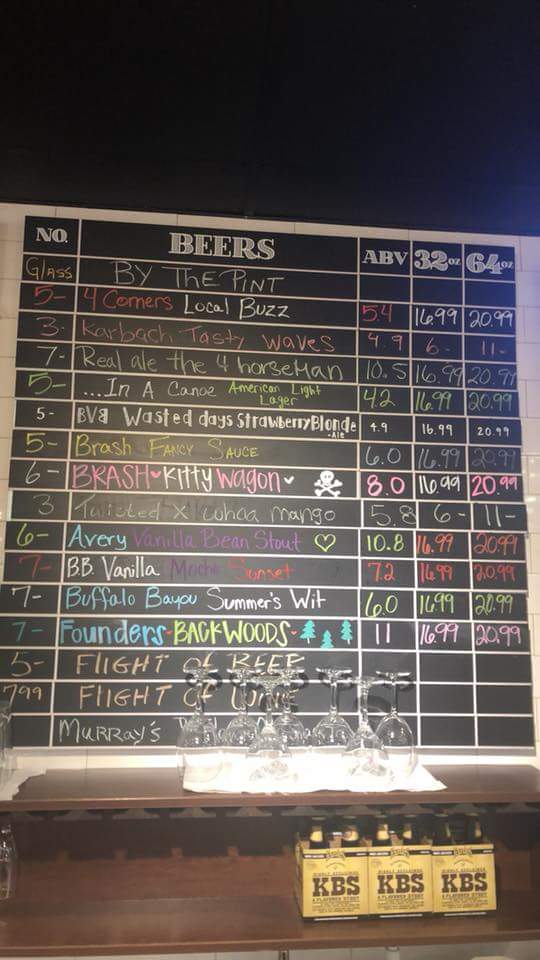 NO. BEERS ABV 32oz 64oz
GLASS BY THE PINT
5- 4 Corners Local Buzz 5.4 16.99 20.99
3- Karbach Tasty waves 4.9 6- 11-
7- Real ale the 4 horseman 10.5 16.99 20.99
5- ...In A Canoe American Light Lager 4.2 16.99 20.99
5- BVB Wasted days Strawberry Blonde -Ale 4.9 16.99 20.99
5- Brash FANCY SAUCE 6.0 16.99 20.99
6- BRASH Kitty Wagon 8.0 16.99 20.99
3 Twisted X whoa mango 5.8 6- 11-
6- Avery Vanilla Bean Stout 10.8 16.99 20.99
7- B.B. Vanilla Mocha Sunset 7.2 16.99 20.99
7- Buffalo Bayou Summer's Wit 6.0 16.99 20.99
7- Founders BACKWOODS 11 16.99 20.99
5- FLIGHT OF BEER
799 FLIGHT OF WINE
MURRAY'S
KBS KBS KBS